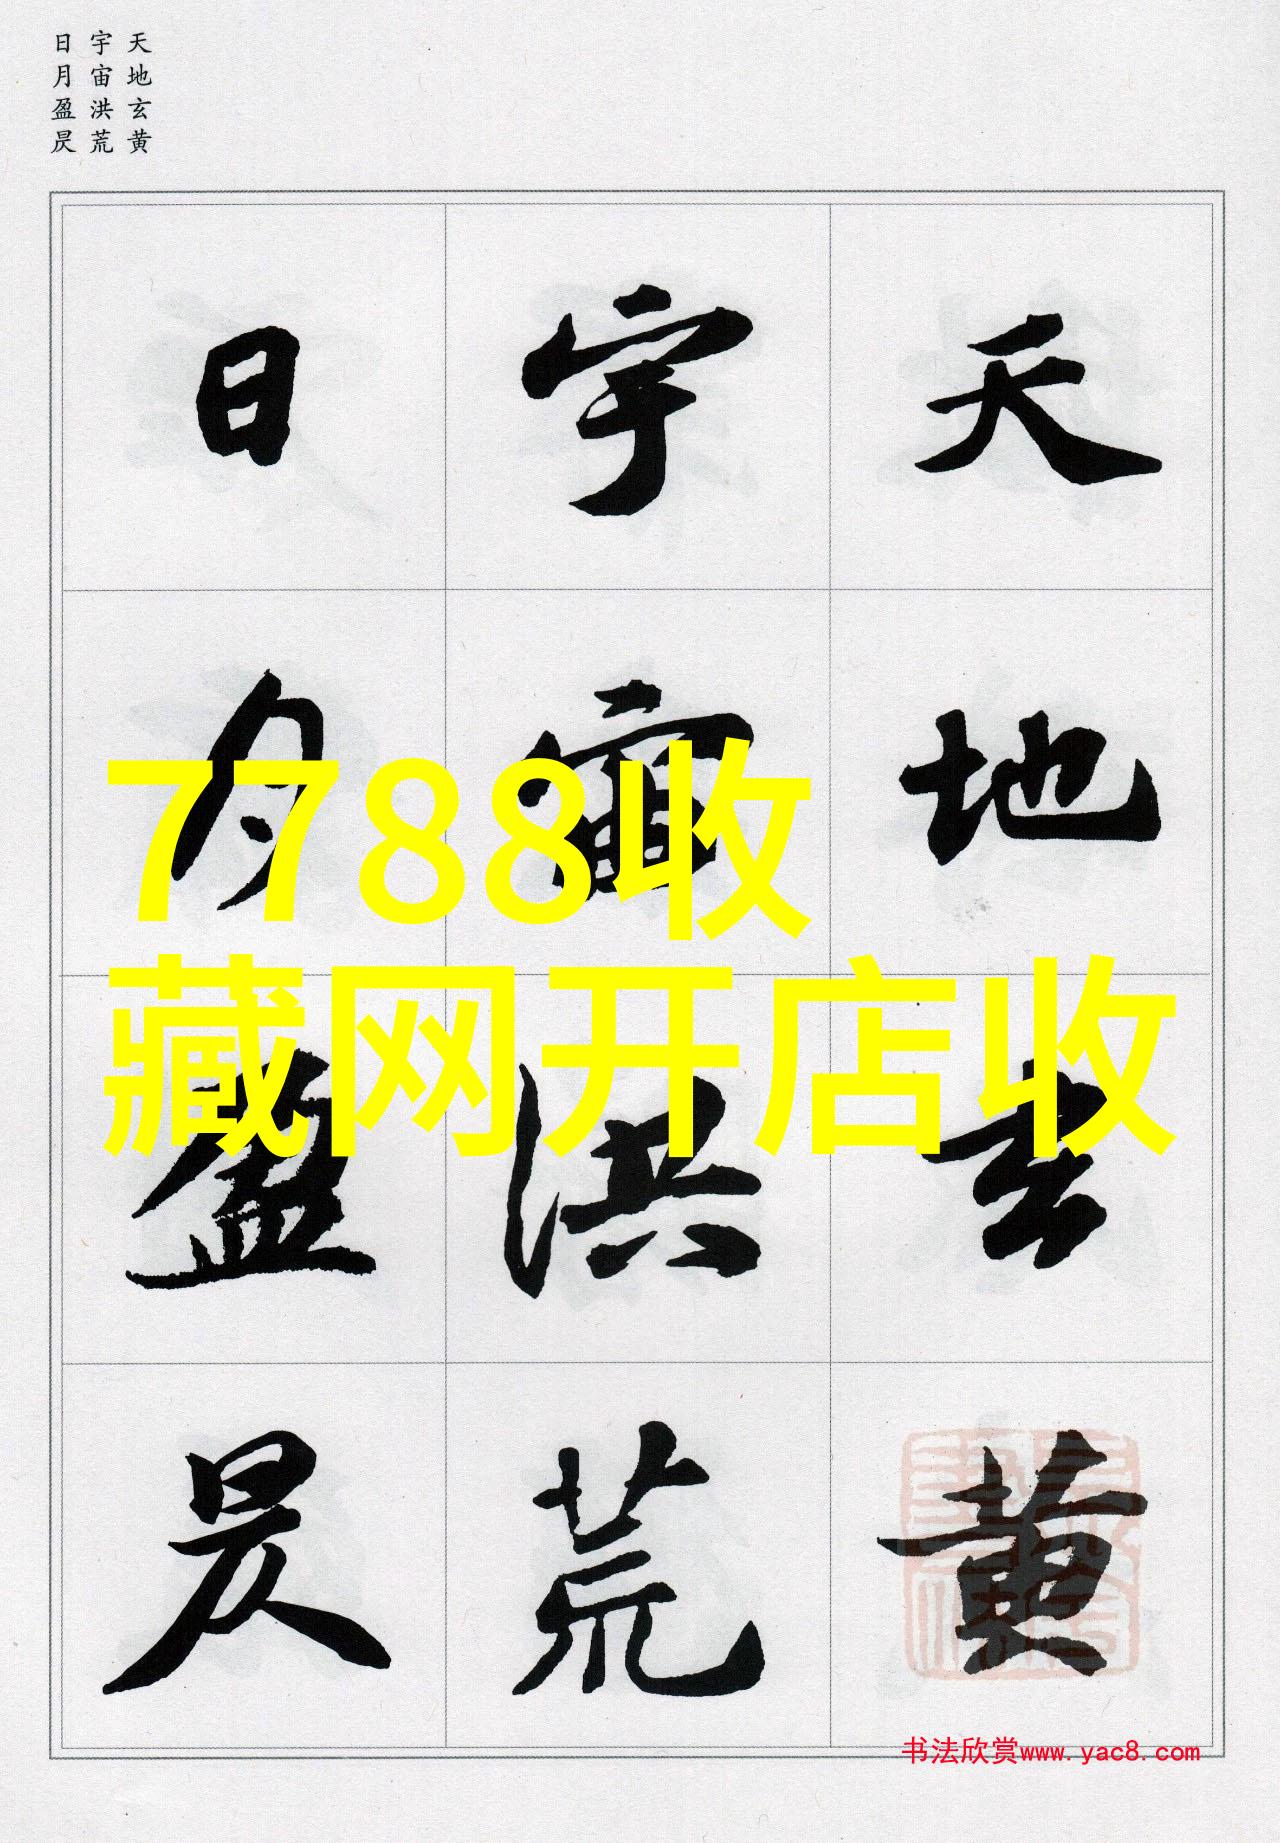 天地玄黄
宇宙洪荒
日月盈昃
天地玄黄
宇宙洪荒
日月盈昃
7788收
藏网开店收
书法欣赏www.yac8.com